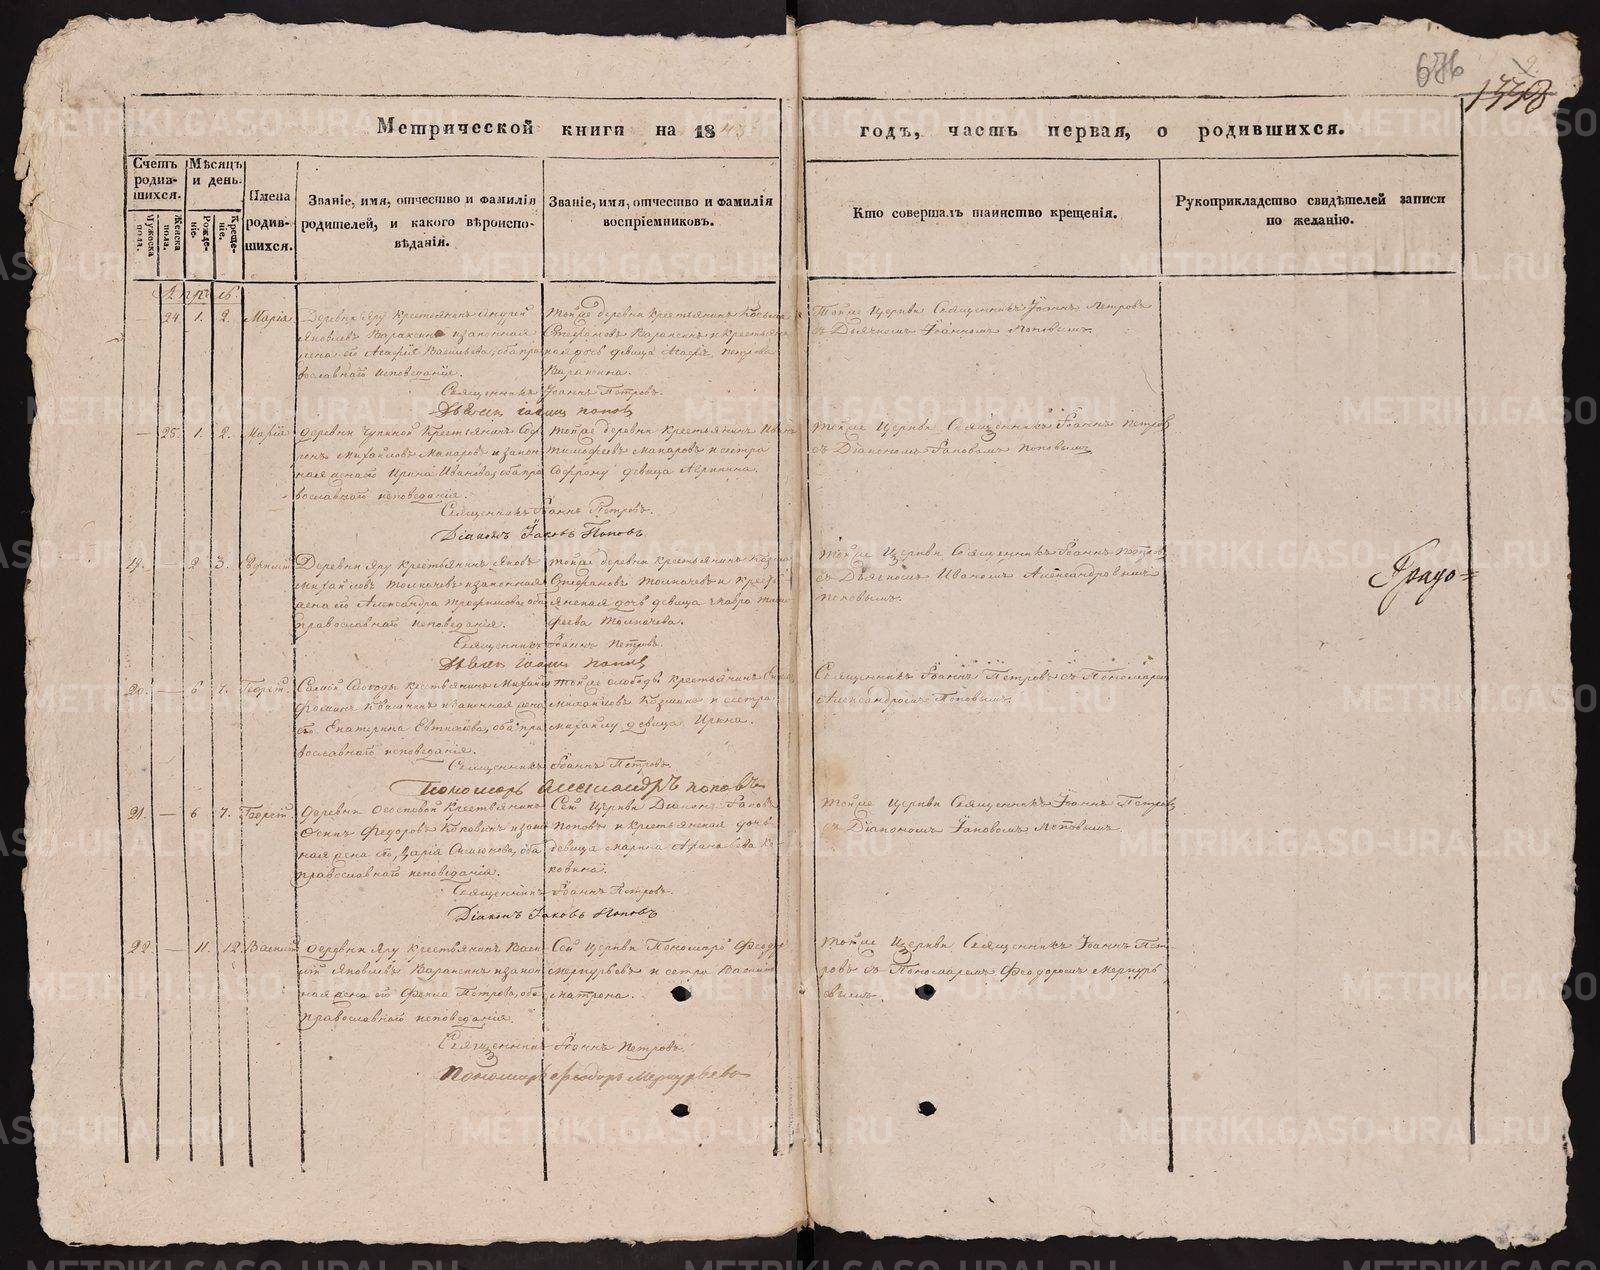 686
1778
Метрической книги на 1843
годъ, часть первая, о родившихся.
Счетъ родившихся.
Мужеска пола.
Женска пола.
Мѣсяцъ и день.
Рожденіе.
Крещеніе.
Имена родившихся.
Званіе, имя, отчество и фамилія родителей, и какого вѣроисповѣданія.
Званіе, имя, отчество и фамилія воспріемниковъ.
Кто совершалъ таинство крещенія.
Рукоприкладство свидѣтелей записи по желанію.
Апрѣль.
— 24. 1. 2. Марія
Деревни Яру крестьянинъ Андрей
Яковлевъ Вараксинъ и законная
жена его Агафія Васильева, оба пра-
вославнаго исповеданія.
Тойже деревни крестьянинъ Козьма
Стефановъ Вараксинъ и крестьян-
ская дочь девица Агафія Петрова
Вараксина.
Тойже Церкви Священникъ Іоаннъ Петровъ
съ Дьячкомъ Іоанномъ Поповымъ.
Священникъ Іоаннъ Петровъ.
Дьячекъ Іоаннъ Поповъ
— 25. 1. 2. Марія
Деревни Чупиной Крестьянинъ Соф-
ронъ Михайловъ Макаровъ и закон-
ная жена его Ирина Иванова, оба пра-
вославнаго исповеданія.
Тойже деревни Крестьянинъ Иванъ
Тимофеевъ Макаровъ и сестра
Софрону девица Агрипина.
Тойже Церкви Священникъ Іоаннъ Петровъ
съ Діакономъ Іаковомъ Поповымъ
Священникъ Іоаннъ Петровъ.
Діаконъ Іаковъ Поповъ
19. — 2 3.
Деревни Яру крестьянинъ Яковъ
Михайловъ Толмачевъ и законная
жена его Александра Трофимова, оба
православнаго исповеданія.
Тойже деревни крестьянинъ Козма
Стефановъ Толмачевъ и крестьянская дочь девица
Толмачева.
Тойже Церкви Священникъ Іоаннъ Петровъ
съ Дьячкомъ Иваномъ Александровымъ
Поповымъ.
Градо=
Священникъ Іоаннъ Петровъ.
Дьячекъ Іоаннъ Поповъ
20. — 6 7. Георгій.
Самой Слободы крестьянинъ Михайло
жена
его Екатерина Евтихіева, оба пра-
вославнаго исповеданія.
Тойже слободы крестьянинъ
Михайловъ и сестра
Михайлу девица Ирина.
Священникъ Іоаннъ Петровъ съ Пономаремъ
Александромъ Поповымъ.
Священникъ Іоаннъ Петровъ.
Пономарь Александръ Поповъ
21. — 6 7. Георгій.
Деревни крестьянинъ
Осипъ Федоровъ Коковинъ и закон-
ная жена его, Дарія, оба
православнаго исповеданія.
Сей Церкви Діаконъ Іаковъ
Поповъ и крестьянская дочь
девица Марина Ко-
ковина.
Тойже Церкви Священникъ Іоаннъ Петровъ
съ Діакономъ Іаковомъ Поповымъ.
Священникъ Іоаннъ Петровъ.
Діаконъ Іаковъ Поповъ
22. — 11. 12. Василій
Деревни Яру крестьянинъ Васи-
лій Яковлевъ Вараксинъ и закон-
ная жена его Фекла Петрова, оба
православнаго исповеданія.
Сей Церкви Пономарь Феодоръ
Меркурьевъ и сестра Василію
Матрона.
Тойже Церкви Священникъ Іоаннъ Пет-
ровъ съ Пономаремъ Феодоромъ Меркурь-
евымъ.
Священникъ Іоаннъ Петровъ.
Пономарь Феодоръ Меркурьевъ
METRIKI.GASO-URAL.RU